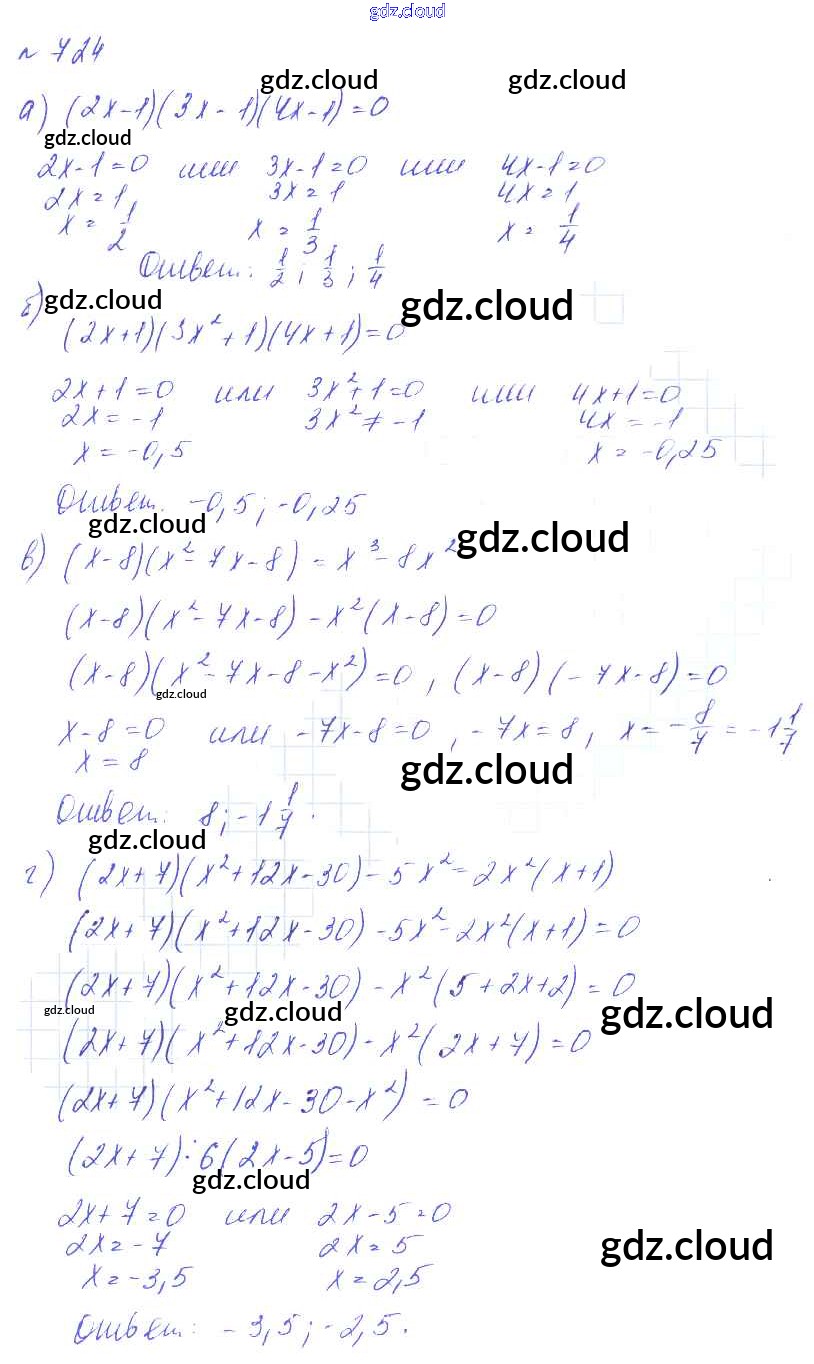 gdz.cloud
№ 724
gdz.cloud gdz.cloud
а) (2x-1)(3x-1)(4x-1)=0
gdz.cloud
2x-1=0 или 3x-1=0 или 4x-1=0
2x=1, 3x=1 4x=1
x=1/2 x=1/3 x=1/4
Ответ: 1/2; 1/3; 1/4
б) gdz.cloud gdz.cloud
(2x+1)(3x²+1)(4x+1)=0
2x+1=0 или 3x²+1=0 или 4x+1=0
2x=-1 3x²≠-1 4x=-1
x=-0,5 x=-0,25
Ответ: -0,5; -0,25
gdz.cloud gdz.cloud
в) (x-8)(x²-7x-8)=x³-8x²
(x-8)(x²-7x-8)-x²(x-8)=0
(x-8)(x²-7x-8-x²)=0, (x-8)(-7x-8)=0
gdz.cloud
x-8=0 или -7x-8=0, -7x=8, x=-8/7=-1 1/7
x=8
gdz.cloud
Ответ: 8; -1 1/7.
gdz.cloud
г) (2x+7)(x²+12x-30)-5x²=2x²(x+1)
(2x+7)(x²+12x-30)-5x²-2x²(x+1)=0
(2x+7)(x²+12x-30)-x²(5+2x+2)=0
gdz.cloud gdz.cloud gdz.cloud
(2x+7)(x²+12x-30)-x²(2x+7)=0
(2x+7)(x²+12x-30-x²)=0
(2x+7)·6(2x-5)=0
gdz.cloud
2x+7=0 или 2x-5=0
2x=-7 2x=5
gdz.cloud
x=-3,5 x=2,5
Ответ: -3,5; -2,5.